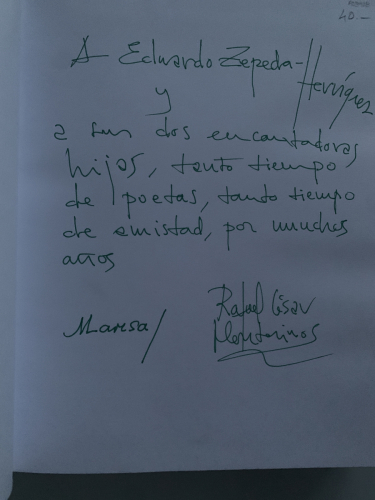 40.—
A Eduardo Zepeda-Henríquez
y
a sus dos encantadoras
hijas, tanto tiempo
de poetas, tanto tiempo
de amistad, por muchos
años
Marisa/
Rafael César
Montesinos